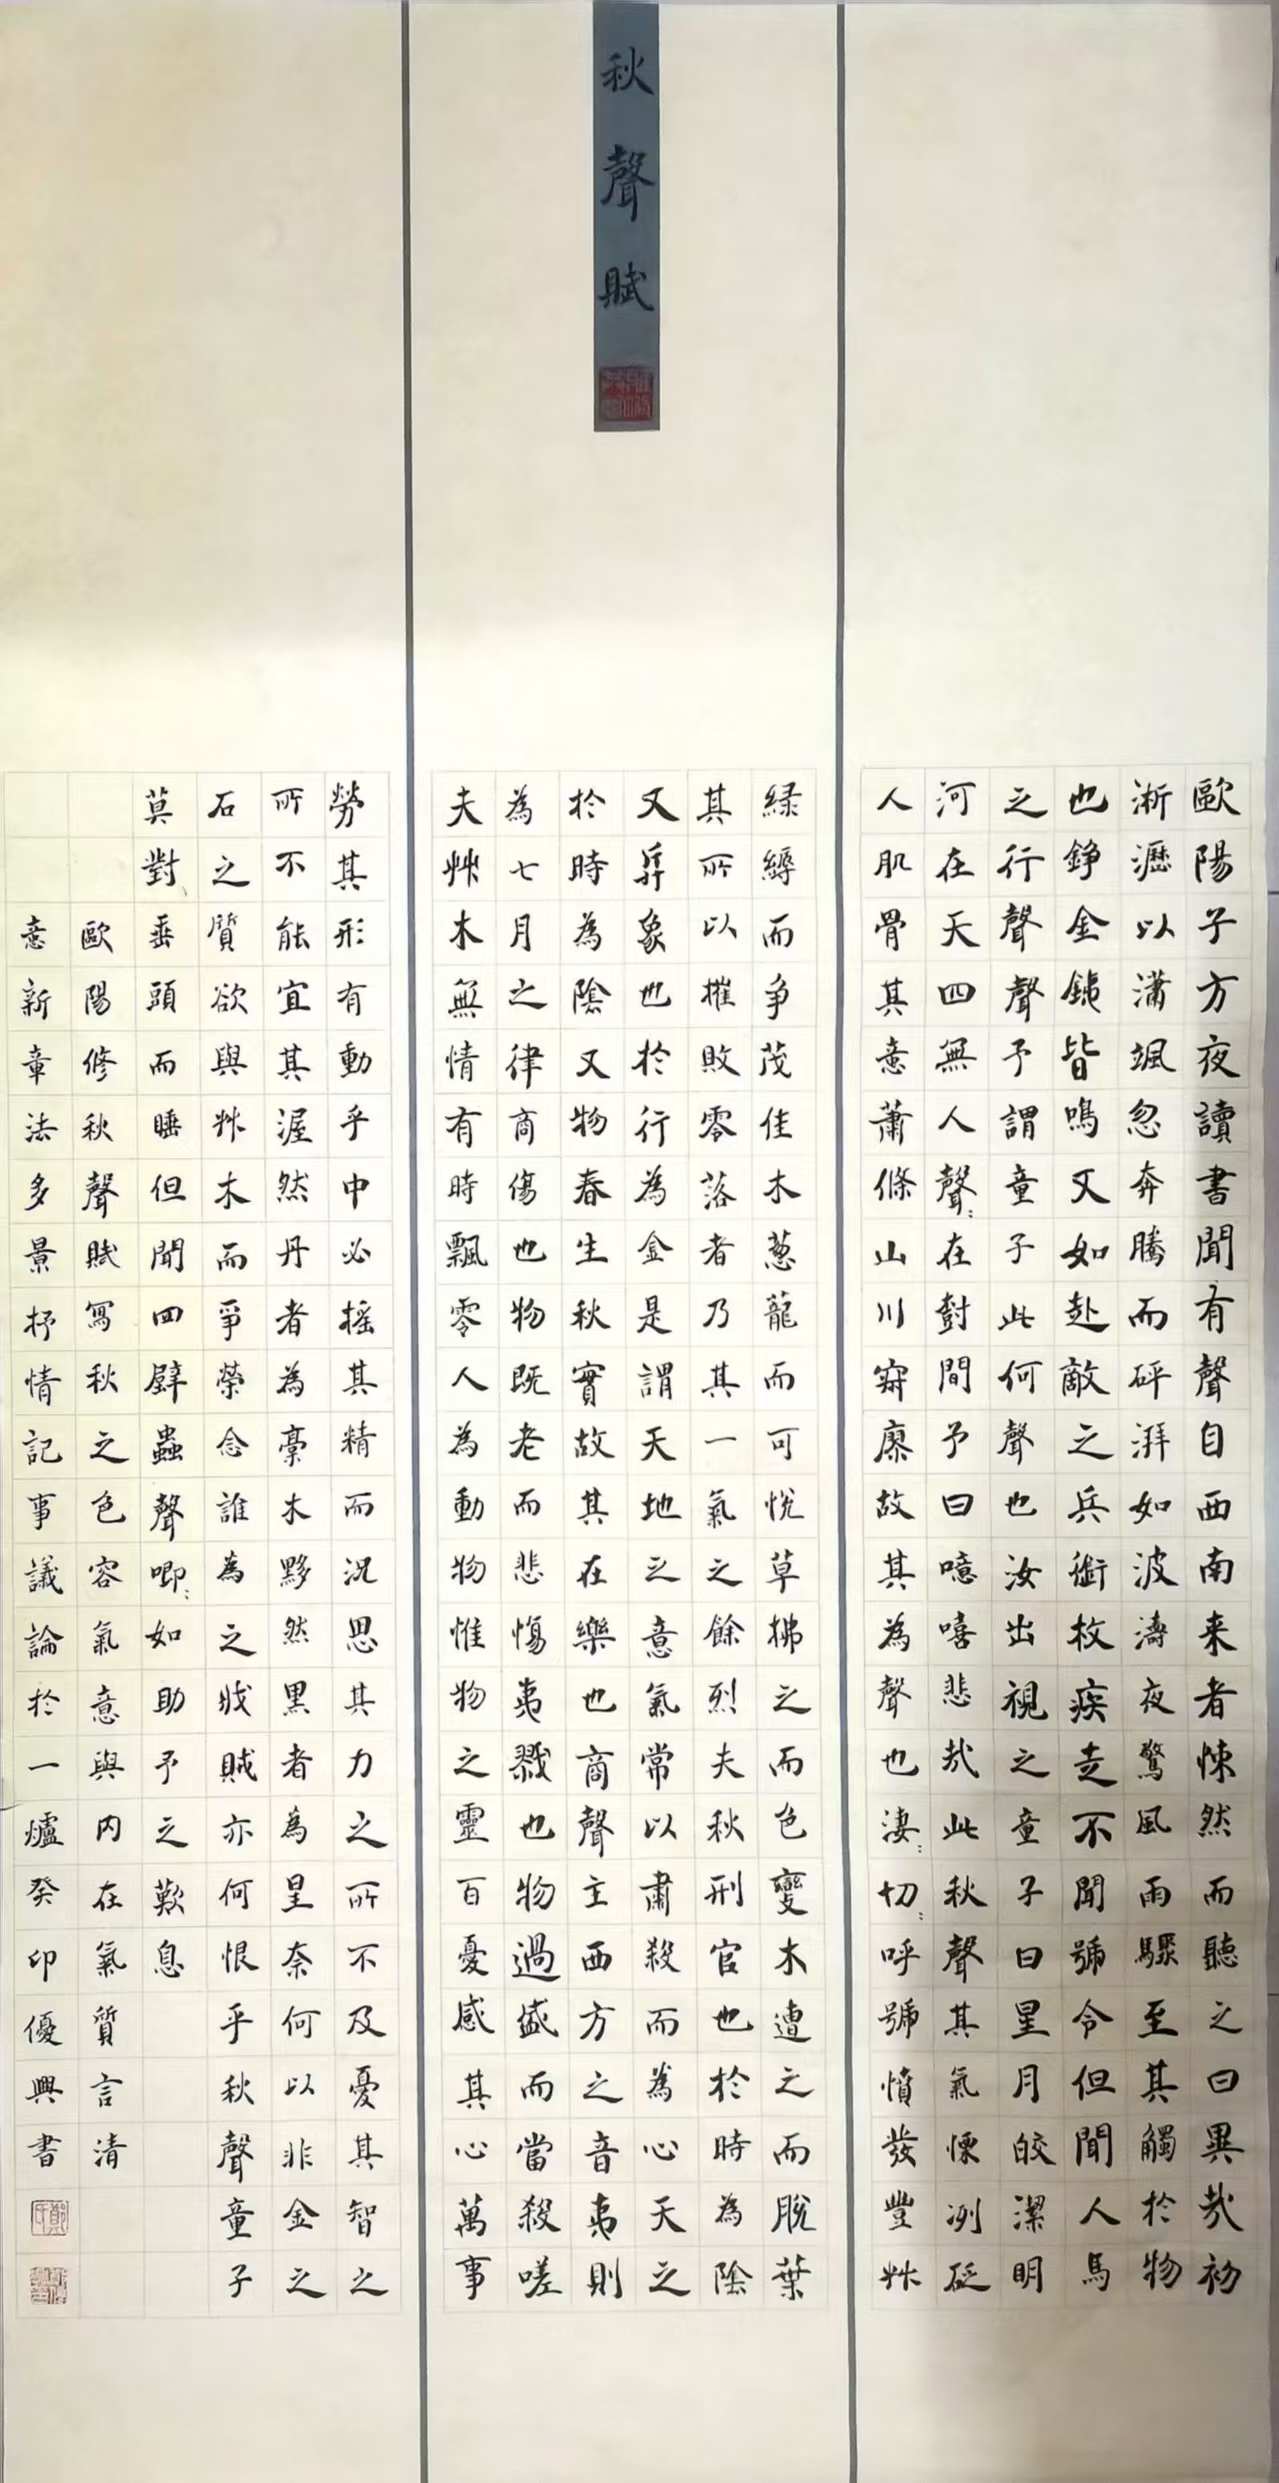 秋聲賦
歐陽子方夜讀書聞有聲自西南来者悚然而聽之曰異哉初
淅瀝以瀟颯忽奔騰而砰湃如波濤夜驚風雨驟至其觸於物
也錚金銕皆鳴又如赴敵之兵銜枚疾走不聞號令但聞人馬
之行聲聲予謂童子此何聲也汝出視之童子曰星月皎潔明
河在天四無人聲〻在樹間予曰噫嘻悲哉此秋聲其氣慄冽砭
人肌骨其意蕭條山川寂廖故其為聲也淒〻切〻呼號憤發豐艸
緑縟而争茂佳木葱龍而可悅草拂之而色變木遭之而脫葉
其所以摧敗零落者乃其一氣之餘烈夫秋刑官也於時為陰
又兵象也於行為金是謂天地之意氣常以肅殺而為心天之
於時為陰又物春生秋實故其在樂也商聲主西方之音夷則
為七月之律商傷也物既老而悲傷夷戮也物過盛而當殺嗟
夫艸木無情有時飄零人為動物惟物之靈百憂感其心萬事
勞其形有動乎中必摇其精而況思其力之所不及憂其智之
所不能宜其渥然丹者為槁木黟然黑者為星奈何以非金之
石之質欲與艸木而爭榮念誰為之戕賊亦何恨乎秋聲童子
莫對垂頭而睡但聞四壁蟲聲唧〻如助予之歎息
歐陽修秋聲賦寫秋之色容氣意與内在氣質言清
意新章法多景抒情記事議論於一爐癸卯優興書